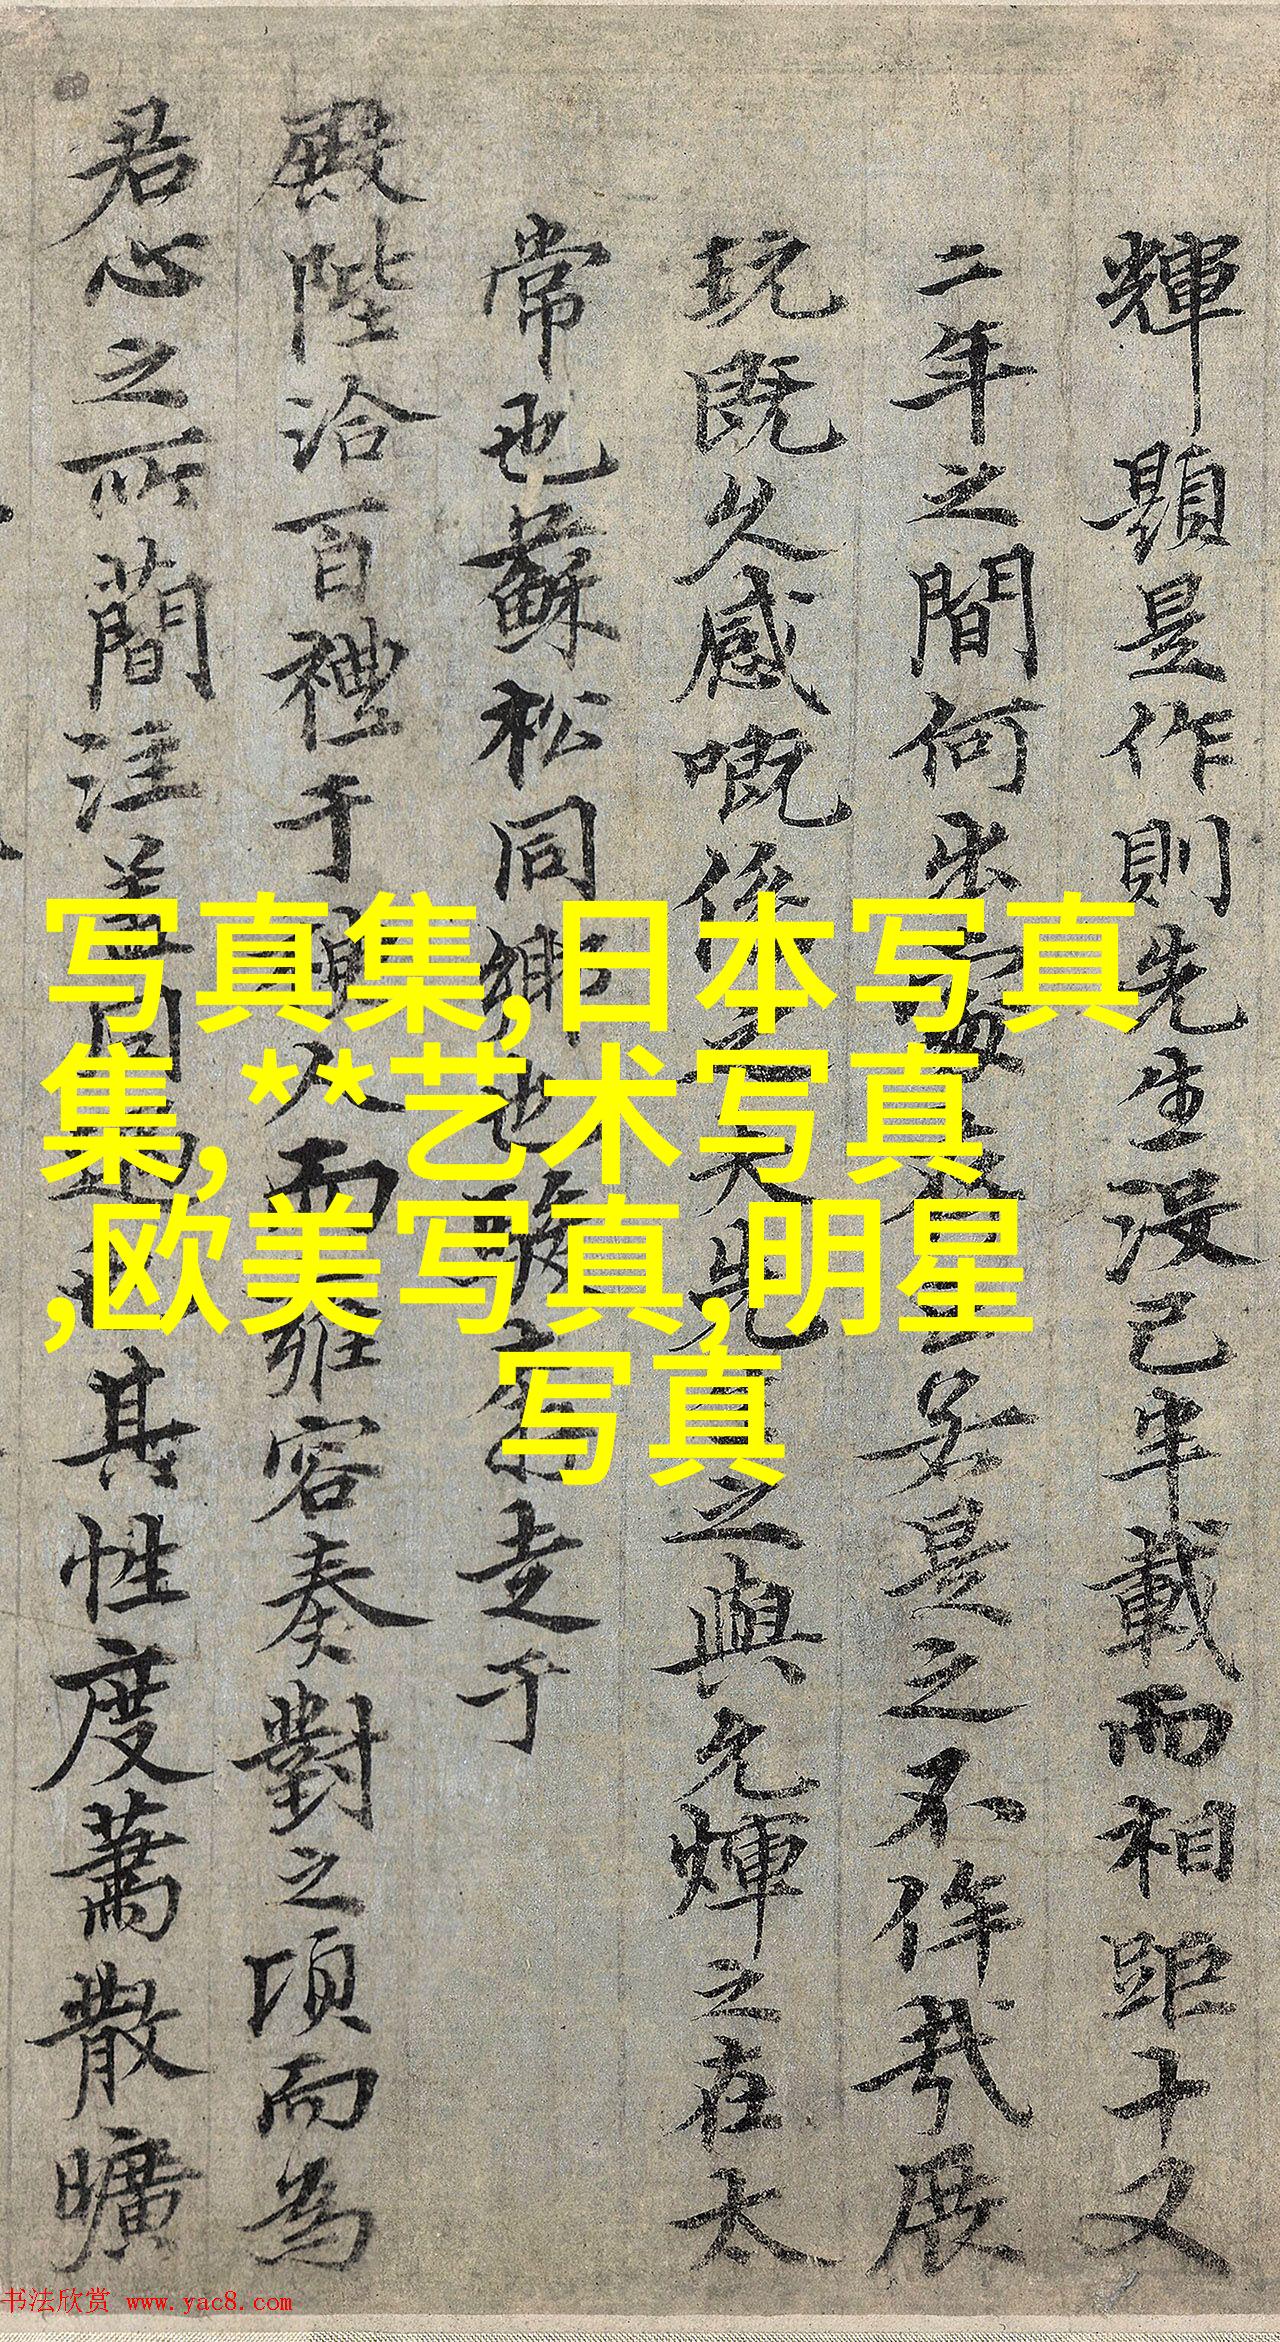 輝題是作則先生没已半載而相距十又
二年之間何出處存亡若是之不侔哉展
玩既久感嘅係之矣先生之與允煇之在太
常也蘇松同鄉也
走于
殿陛洽百禮于
人而雍容奏對之頃而為
君心之所簡注
其性度蕭散曠
写真集,日本写真
集,**艺术写真
,欧美写真,明星
写真
书法欣赏 www.yac8.com